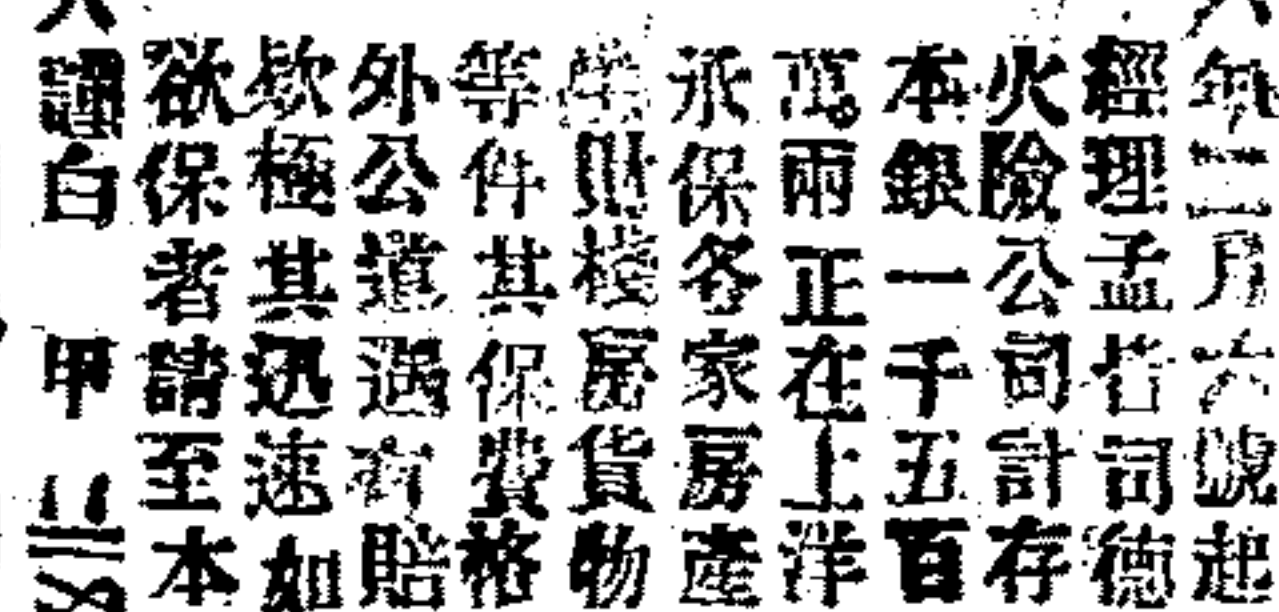 年二月六號起
經理孟若司德
火險公司計存
本銀一千五百
萬兩正在上洋
承保各家房產
棧房貨物
等件其保費格
外公道遇有賠
款極其迅速如
欲保者請至本
謹白 甲